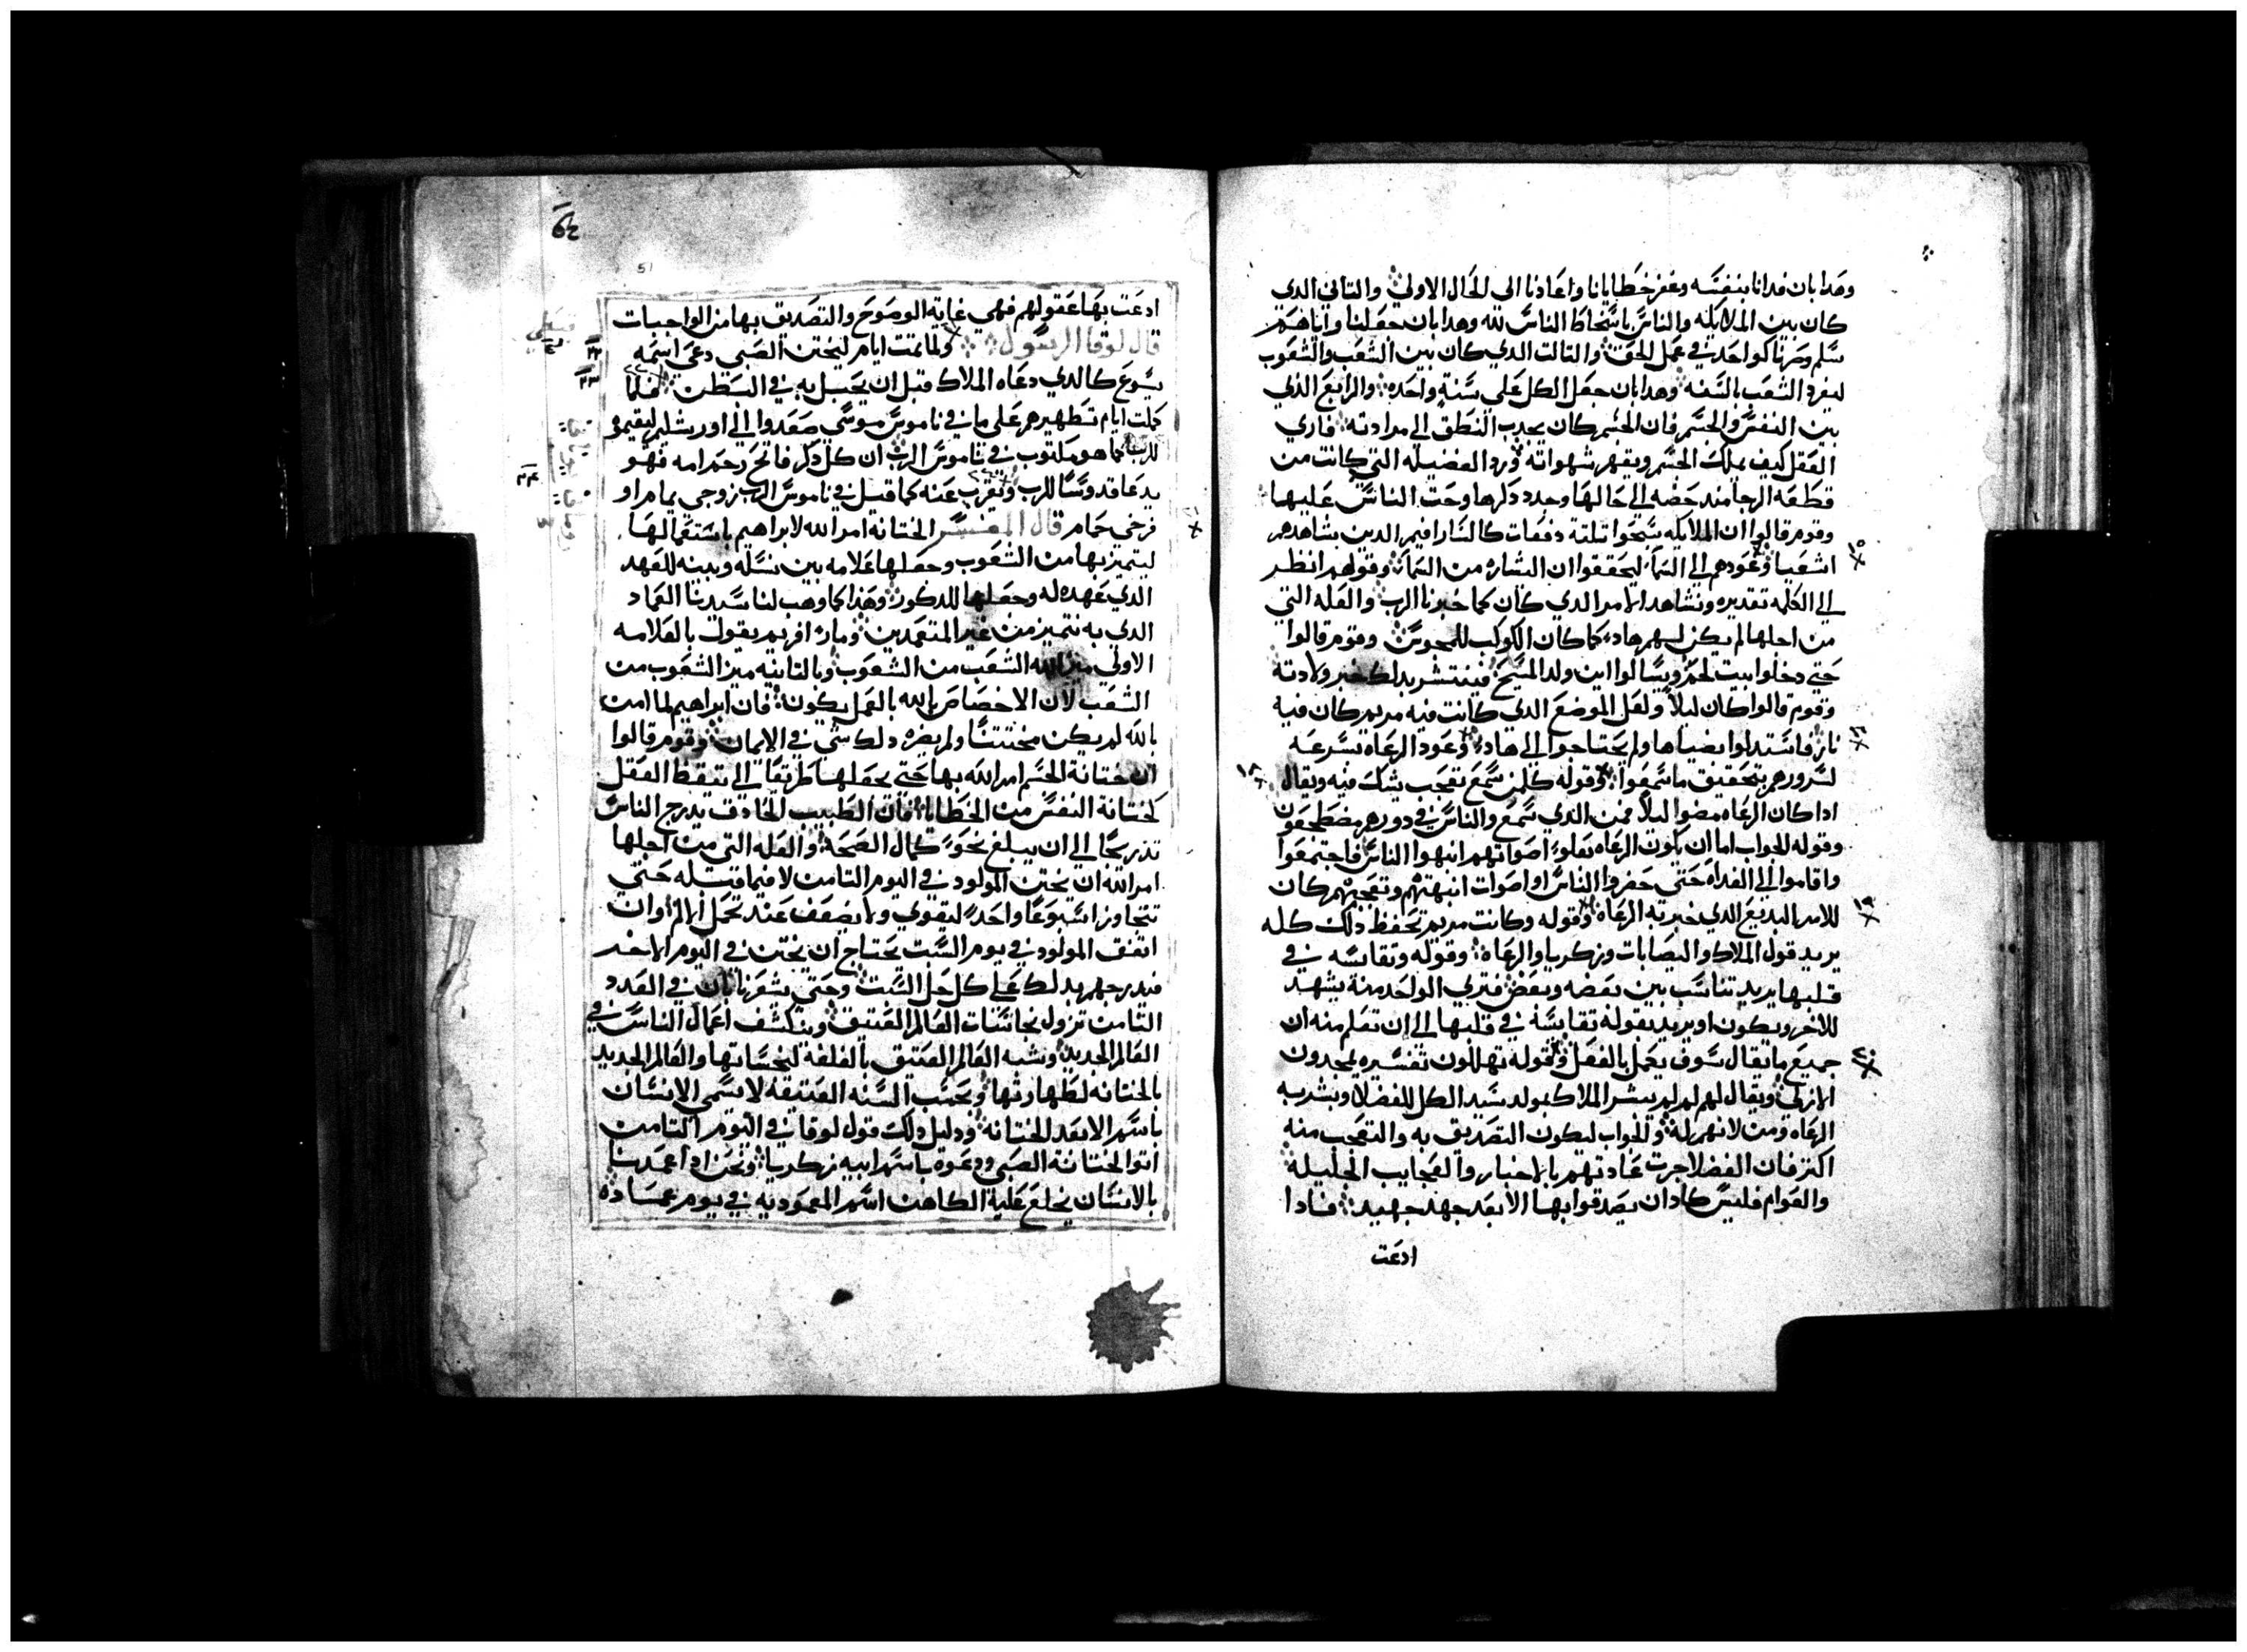 وهدا بان فدانا بنفسه وغفر خطايانا واعادنا الي الحال الاولي والتاني الدي
كان بين الملايكه والناس باسخاط الناس لله وهدا بان جعلنا واياهم
سلم وصرنا كواحد في عمل الحق والتالت الدي كان بين الشعب والشعوب
ليفرد الشعب بالسنه وهدا بان جعل الكل علي سنة واحده والرابع الدي
بين النفس والجسم فان الجسم كان يجدب النطق الي مراداته فاري
العقل كيف يملك الجسم ويقهر شهواته ورد الفضيله التي كانت من
قطعه الرجا مند حضه الي حالها وجدد دكرها وحت الناس عليها
وقوم قالوا ان الملايكه سبحوا تلتة دفعات كالسارافيم الدين شاهدهم
اشعيا وعودهم الي السما ليحققوا ان البشاره من السما وقولهم انظر
الي الكلمه تقديره ونشاهد الامر الدي كان كما خبرنا الرب والعله التي
من اجلها لم يكن لهم هاد كما كان الكوكب للمجوس وقوم قالوا
حتي دخلوا بيت لحم ويسالوا اين ولد المسيح فينتشر بدلك خبر ولادته
وقوم قالوا كان ليلا ولعل الموضع الدي كانت فيه مريم كان فيه
نار فاستدلوا بضياها ولم يحتاجوا الي هاد وعود الرعاه بسرعه
لسرورهم بتحقيق ما سمعوا وقوله كلمن سمع تعجب يشك فيه ويقال
ادا كان الرعاه مضوا ليلا فمن الدي سمع والناس في دورهم مضطجعون
وقوله الجواب اما ان يكون الرعاه بعلو اصواتهم انبهوا الناس فاجتمعوا
واقاموا الي الغداه حتي حضروا الناس او اصوات انبهتهم وتعجبهم كان
للامر البديع الدي خبر به الرعاه وقوله وكانت مريم تحفظ دلك كله
يريد قول الملاك واليصابات وزكريا والرعاه وقوله وتقايسه في
قلبها يريد تناسب بين بعضه وبعض فتري الواحد منة يشهد
للاخر ويكون او يريد بقوله تقايسة في قلبها الي ان تعلم منه ان
جميع ما يقال سوف يعمل بالفعل وقوله تهللون تفسيره يمجدون
الازلي ويقال لهم لم لم يبشر الملاك بمولد سيد الكل للفضلا وبشر به
الرعاه ومن لا نهم له والجواب ليكون التصديق به والتعجب منه
اكتر فان الفضلا جرت عادتهم بالاخبار والعجايب الجليلة
والعوام فليس كاد ان يصدقوا بها الا بعد جهد جهيد فادا
ادعت
ادعت بها عقولهم فهي غاية الوضوح والتصديق بها من الواجبات
قال لوقا الرسول ولما تمت ايام ليختن الصبي دعي اسمه
يسوع كالدي دعاه الملاك قبل ان يحبل به في البطن فلما
كملت ايام تطهيرهم علي ما في ناموس موسي صعدوا الي اورشليم ليقيموه
للرب كما هو مكتوب في ناموس الرب ان كل دكر فاتح رحم امه فهو
يدعا قدوسا للرب وتقرب عنه كما قيل في ناموس الرب زوجي يمام او
فرخي حمام قال المفسر الختانه امر الله لابراهيم باستعمالها
ليتميز بها من الشعوب وجعلها علامه بين نسله وبينه للعهد
الدي عهده له وجعلها للدكور وهدا كما وهب لنا سيدنا العماد
الدي به نتميز من غير المتعمدين ومار افريم يقول بالعلامه
الاولي ميز الله الشعب من الشعوب وبالتانيه ميز الشعوب من
الشعب لان الاختصاص بالله بالعمل يكون فان ابراهيم لما امن
بالله لم يكن مختتنا ولم يضره دلك شي في الايمان وقوم قالوا
ان ختانة الجسم امر الله بها حتي يجعلها طريقا الي تيقظ العقل
لختانة النفس من الخطايا فان الطبيب الحادق يدرج الناس
تدريجا الي ان يبلغ نحو كمال الصحة والعله التي من اجلها
امر الله ان يختن المولود في اليوم التامن لا فيما قبله حتي
تتجاوز اسبوعا واحد ليقوي ولا يضعف عند تحمل الالم وان
اتفق المولود في يوم السبت يحتاج ان يختن في اليوم الاخر
فيدرجهم بدلك علي كل حل السبت وحتي يشعرنا بان في العدد
التامن تزول نجاسات العالم العتيق وينكشف اعمال الناس في
العالم الجديد ونشبه العالم العتيق بالغلفة لنجساتها والعالم الجديد
بالختانه لطهارتها وبحسب السنه العتيقه لا يسمي الانسان
باسم الا بعد الختانه ودليل دلك قول لوقا في اليوم التامن
اتوا لختانة الصبي ودعوه باسم ابيه زكريا ونحن ادا عمدنا
بالانسان يخلع عليه الكاهن اسم المعموديه في يوم عماده